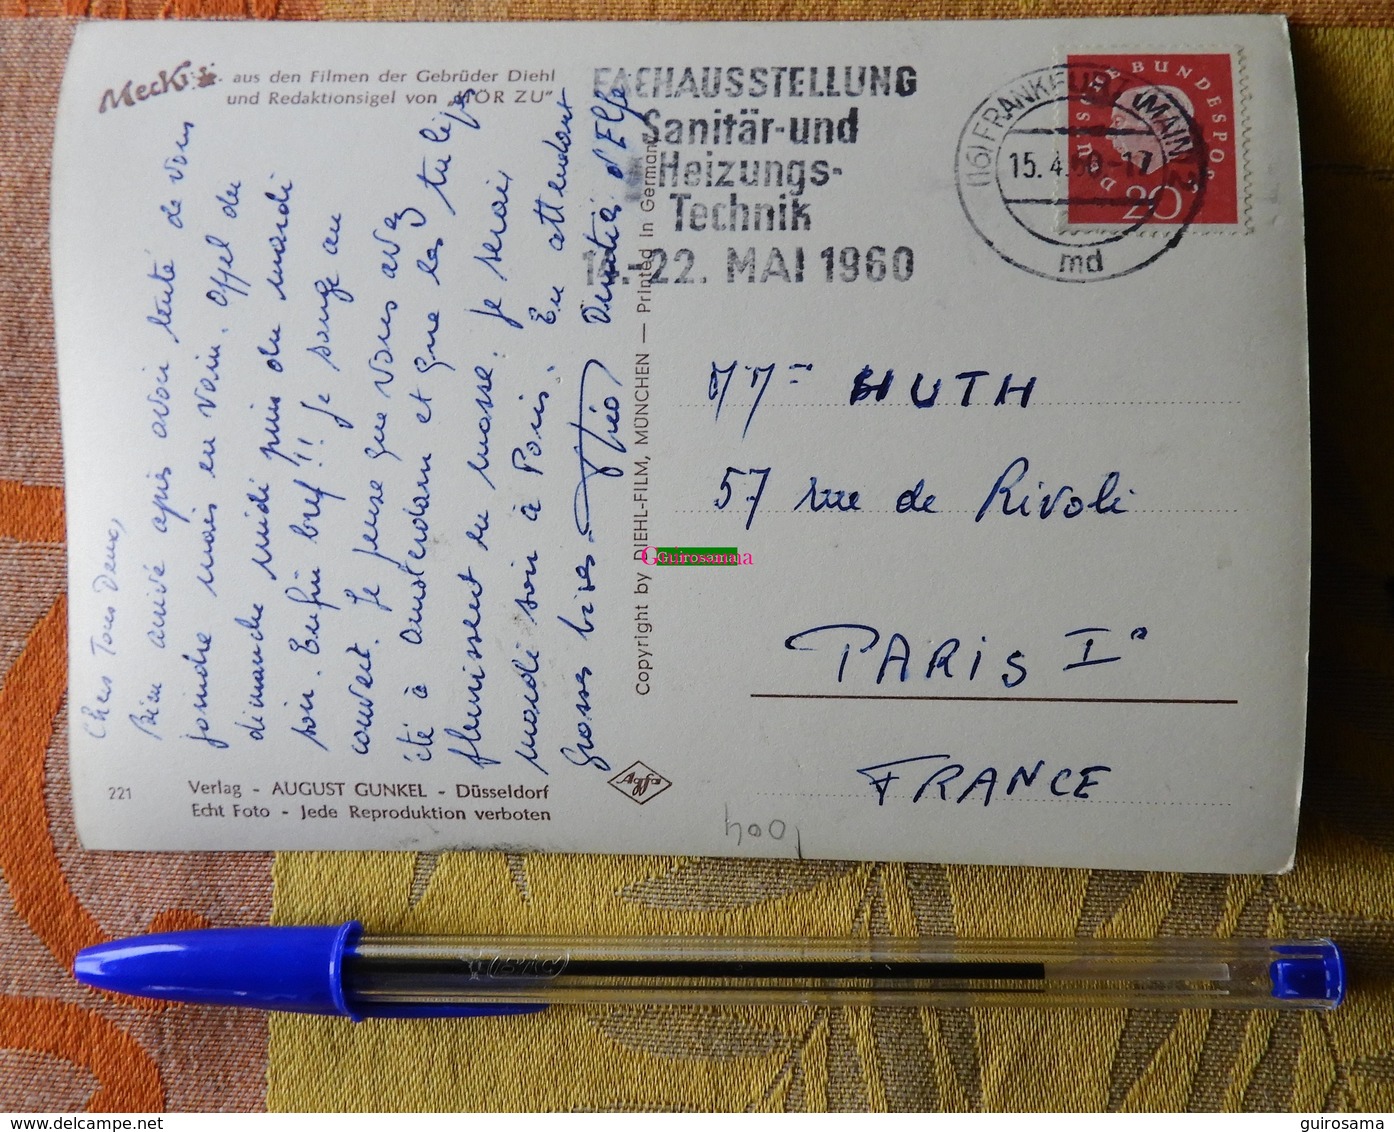 Mecki
.. aus den Filmen der Gebrüder Diehl
und Redaktionsigel von "HÖR ZU"
FACHAUSSTELLUNG
Sanitär-und
Heizungs-
Technik
22. MAI 1960
(16) FRANKFURT (MAIN) 2
15. 4. 60.-17
md
DEUTSCHE BUNDESPOST
20
Chers Tous Deux,
Bien arrivé après avoir tenté de vous
joindre mais en vain. Appel de
dimanche midi puis du mardi
soir. Enfin bref !! Je songe au
couvert. Je pense que vous avez
été à Amsterdam et que les tulipes
fleurissent en masse. Je serai
mardi soir à Paris. En attendant
Grosses bises
d'Elfe
Copyright by DIEHL-FILM, MÜNCHEN — Printed in Germany
Mme HUTH
57 rue de Rivoli
PARIS Io
FRANCE
221
Verlag - AUGUST GUNKEL - Düsseldorf
Echt Foto - Jede Reproduktion verboten
Agfa
Guirosama
BIC
guirosama